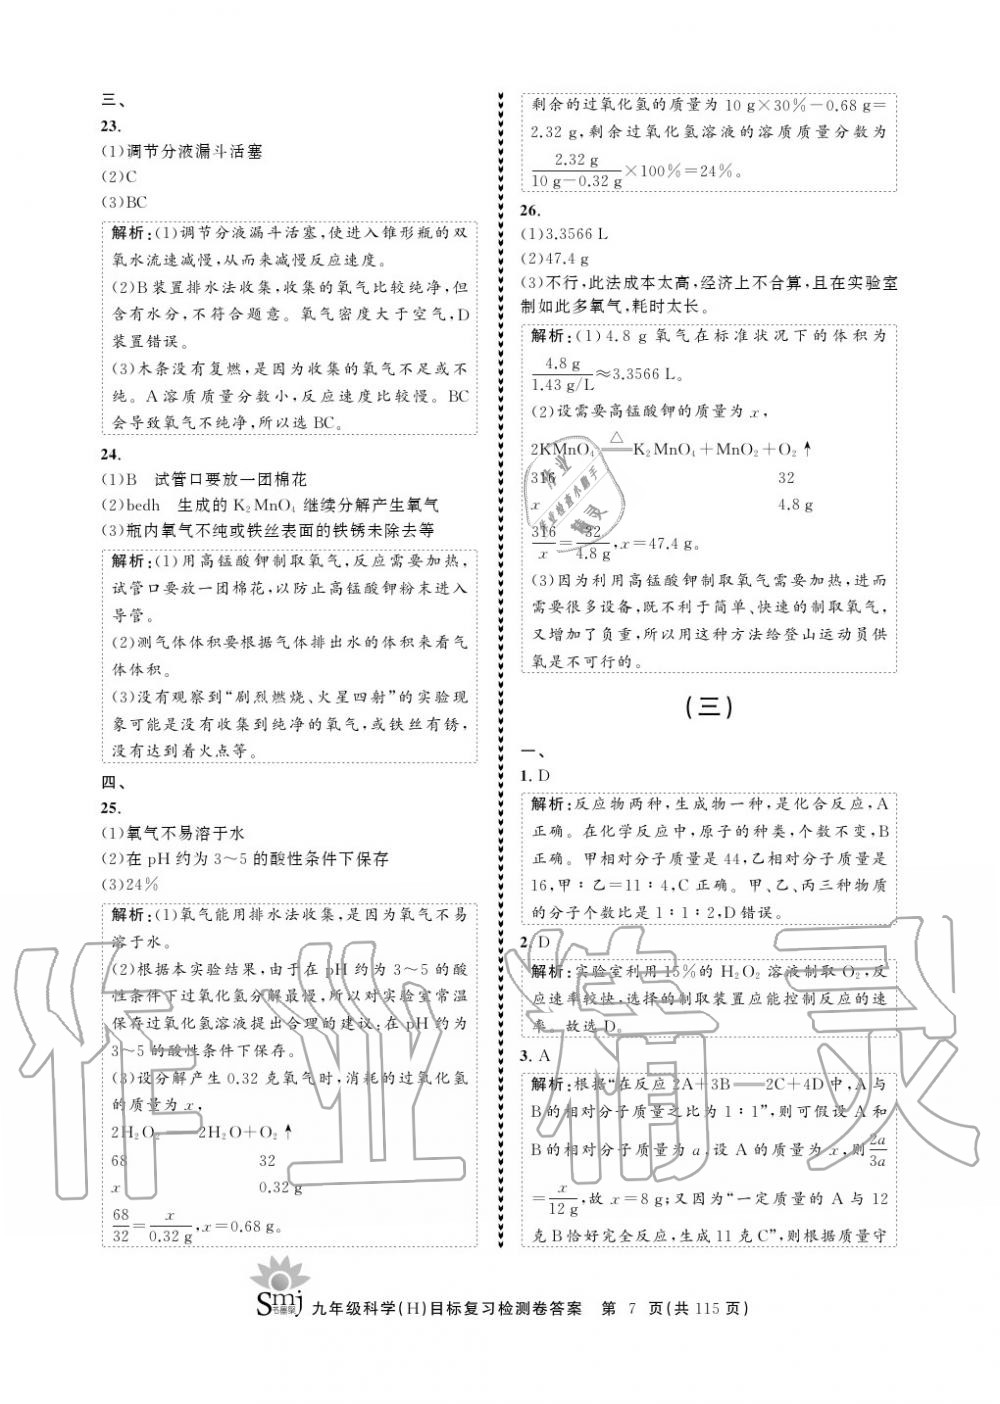 三、
23.
(1)调节分液漏斗活塞
(2)C
(3)BC
解析:(1)调节分液漏斗活塞,使进入锥形瓶的双
氧水流速减慢,从而来减慢反应速度。
(2)B装置排水法收集,收集的氧气比较纯净,但
含有水分,不符合题意。氧气密度大于空气,D
装置错误。
(3)木条没有复燃,是因为收集的氧气不足或不
纯。A溶质质量分数小,反应速度比较慢。BC
会导致氧气不纯净,所以选BC。
24.
(1)B 试管口要放一团棉花
(2)bedh 生成的K₂MnO₄继续分解产生氧气
(3)瓶内氧气不纯或铁丝表面的铁锈未除去等
解析:(1)用高锰酸钾制取氧气,反应需要加热,
试管口要放一团棉花,以防止高锰酸钾粉末进入
导管。
(2)测气体体积要根据气体排出水的体积来看气
体体积。
(3)没有观察到“剧烈燃烧、火星四射”的实验现
象可能是没有收集到纯净的氧气,或铁丝有锈,
没有达到着火点等。
四、
25.
(1)氧气不易溶于水
(2)在pH约为3～5的酸性条件下保存
(3)24%
解析:(1)氧气能用排水法收集,是因为氧气不易
溶于水。
(2)根据本实验结果,由于在pH约为3～5的酸
性条件下过氧化氢分解最慢,所以对实验室常温
保存过氧化氢溶液提出合理的建议:在pH约为
3～5的酸性条件下保存。
(3)设分解产生0.32克氧气时,消耗的过氧化氢
的质量为x,
2H₂O₂══2H₂O+O₂↑
68 32
x 0.32 g
68/32=x/0.32 g,x=0.68 g。
剩余的过氧化氢的质量为10 g×30%-0.68 g=
2.32 g,剩余过氧化氢溶液的溶质质量分数为
2.32 g/10 g-0.32 g×100%=24%。
26.
(1)3.3566 L
(2)47.4 g
(3)不行,此法成本太高,经济上不合算,且在实验室
制如此多氧气,耗时太长。
解析:(1)4.8 g氧气在标准状况下的体积为
4.8 g/1.43 g/L≈3.3566 L。
(2)设需要高锰酸钾的质量为x,
2KMnO₄══△K₂MnO₄+MnO₂+O₂↑
316 32
x 4.8 g
316/x=32/4.8 g,x=47.4 g。
(3)因为利用高锰酸钾制取氧气需要加热,进而
需要很多设备,既不利于简单、快速的制取氧气,
又增加了负重,所以用这种方法给登山运动员供
氧是不可行的。
(三)
一、
1. D
解析:反应物两种,生成物一种,是化合反应,A
正确。在化学反应中,原子的种类,个数不变,B
正确。甲相对分子质量是44,乙相对分子质量是
16,甲∶乙=11∶4,C正确。甲、乙、丙三种物质
的分子个数比是1∶1∶2,D错误。
2. D
解析:实验室利用15%的H₂O₂溶液制取O₂,反
应速率较快,选择的制取装置应能控制反应的速
率。故选D。
3. A
解析:根据“在反应2A+3B══2C+4D中,A与
B的相对分子质量之比为1∶1”,则可假设A和
B的相对分子质量为a,设A的质量为x,则2a/3a
=x/12 g,故x=8 g;又因为“一定质量的A与12
克B恰好完全反应,生成11克C”,则根据质量守
Smj 九年级科学(H)目标复习检测卷答案 第 7 页(共115页)
作业精灵